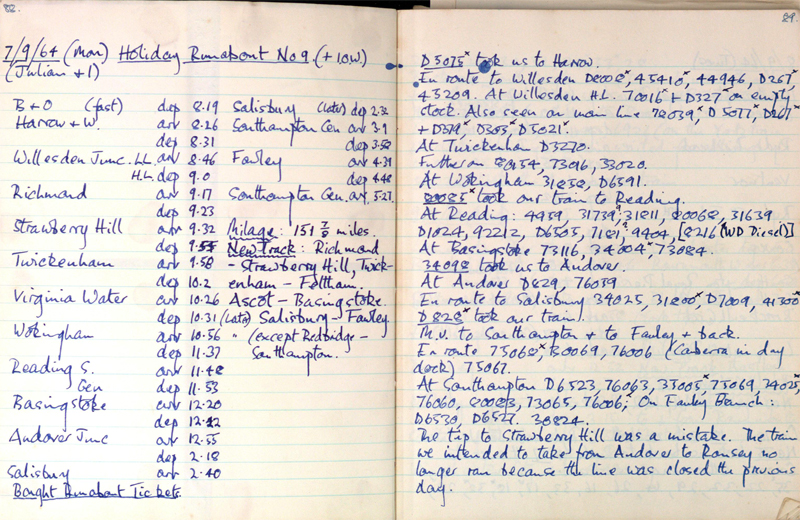 82.
7/9/64 (Mon) Holiday Runabout No 9. (+ 10W)
(Julian + 1)
B + O (fast) dep 8.19
Harrow + W. arr 8.26
dep 8.31
Willesden Junc. L.L. arr 8.46
H.L. dep 9.0
Richmond arr 9.17
dep 9.23
Strawberry Hill arr 9.32
dep 9.55
Twickenham arr 9.58
dep 10.2
Virginia Water arr 10.26
dep 10.31
Wokingham arr 10.56
dep 11.37
Reading S. arr 11.48
Gen dep 11.53
Basingstoke arr 12.20
dep 12.42
Andover Junc arr 12.55
dep 2.18
Salisbury arr 2.40
Bought Runabout Tickets.
Salisbury (late) dep 2.32
Southampton Gen arr 3.9
dep 3.52
Fawley arr 4.39
dep 4.48
Southampton Gen. arr. 5.27
Milage: 151 7/8 miles.
New Track: Richmond
- Strawberry Hill, Twick-
enham - Feltham.
Ascot - Basingstoke.
(late) Salisbury - Fawley
" (except Redbridge -
Southampton.
29.
D5075 took us to Harrow.
En route to Willesden 45410x, 44946, D267x,
45209. At Willesden H.L. 70016x + D327x on empty
stock. Also seen on main line 78039x, D5077x, D267x
+ D303x, D5021x.
At Twickenham D3270.
Further on 73096, 33020.
At Wokingham 31858, D6591.
took our train to Reading.
At Reading: 4959, 31739, 31811, 80068, 31639
D1024, 92212, D6505, 7181, 9404, [8216 (WD Diesel)]
At Basingstoke 73116, 34004x, 73084.
34098 took us to Andover.
At Andover D829, 76039
En route to Salisbury 34025, 31800x, D7009, 41300x
D828x took our train.
M.U. to Southampton + to Fawley + back.
En route 75068x, 80069, 76006 (Canberra in day
dock) 75067.
At Southampton D6523, 76063, 33005x, 73069,
76060, 80083, 73065, 76006x, On Fawley Branch:
D6530, D6527. 30824.
The tip to Strawberry Hill was a mistake. The train
we intended to take from Andover to Romsey no
longer ran because the line was closed the previous
day.